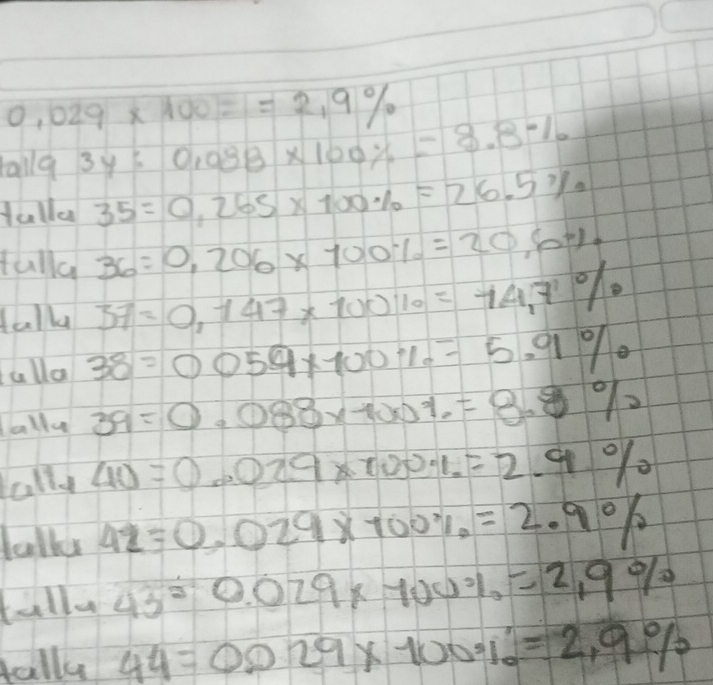 0,029 x 100 = = 2,9%
talla 34 = 0,088 x 100% = 8.8%
talla 35 = 0,265 x 100% = 26.5%
talla 36 = 0,206 x 100% = 20,6%
talla 37 = 0,147 x 100% = 14,7%
talla 38 = 0059 x 100% = 5.9%
talla 39 = 0.088 x 100% = 8.8%
talla 40 = 0.029 x 100% = 2.9%
talla 42 = 0.029 x 100% = 2.9%
talla 43 = 0.029 x 100% = 2,9%
talla 44 = 0029 x 100% = 2,9%